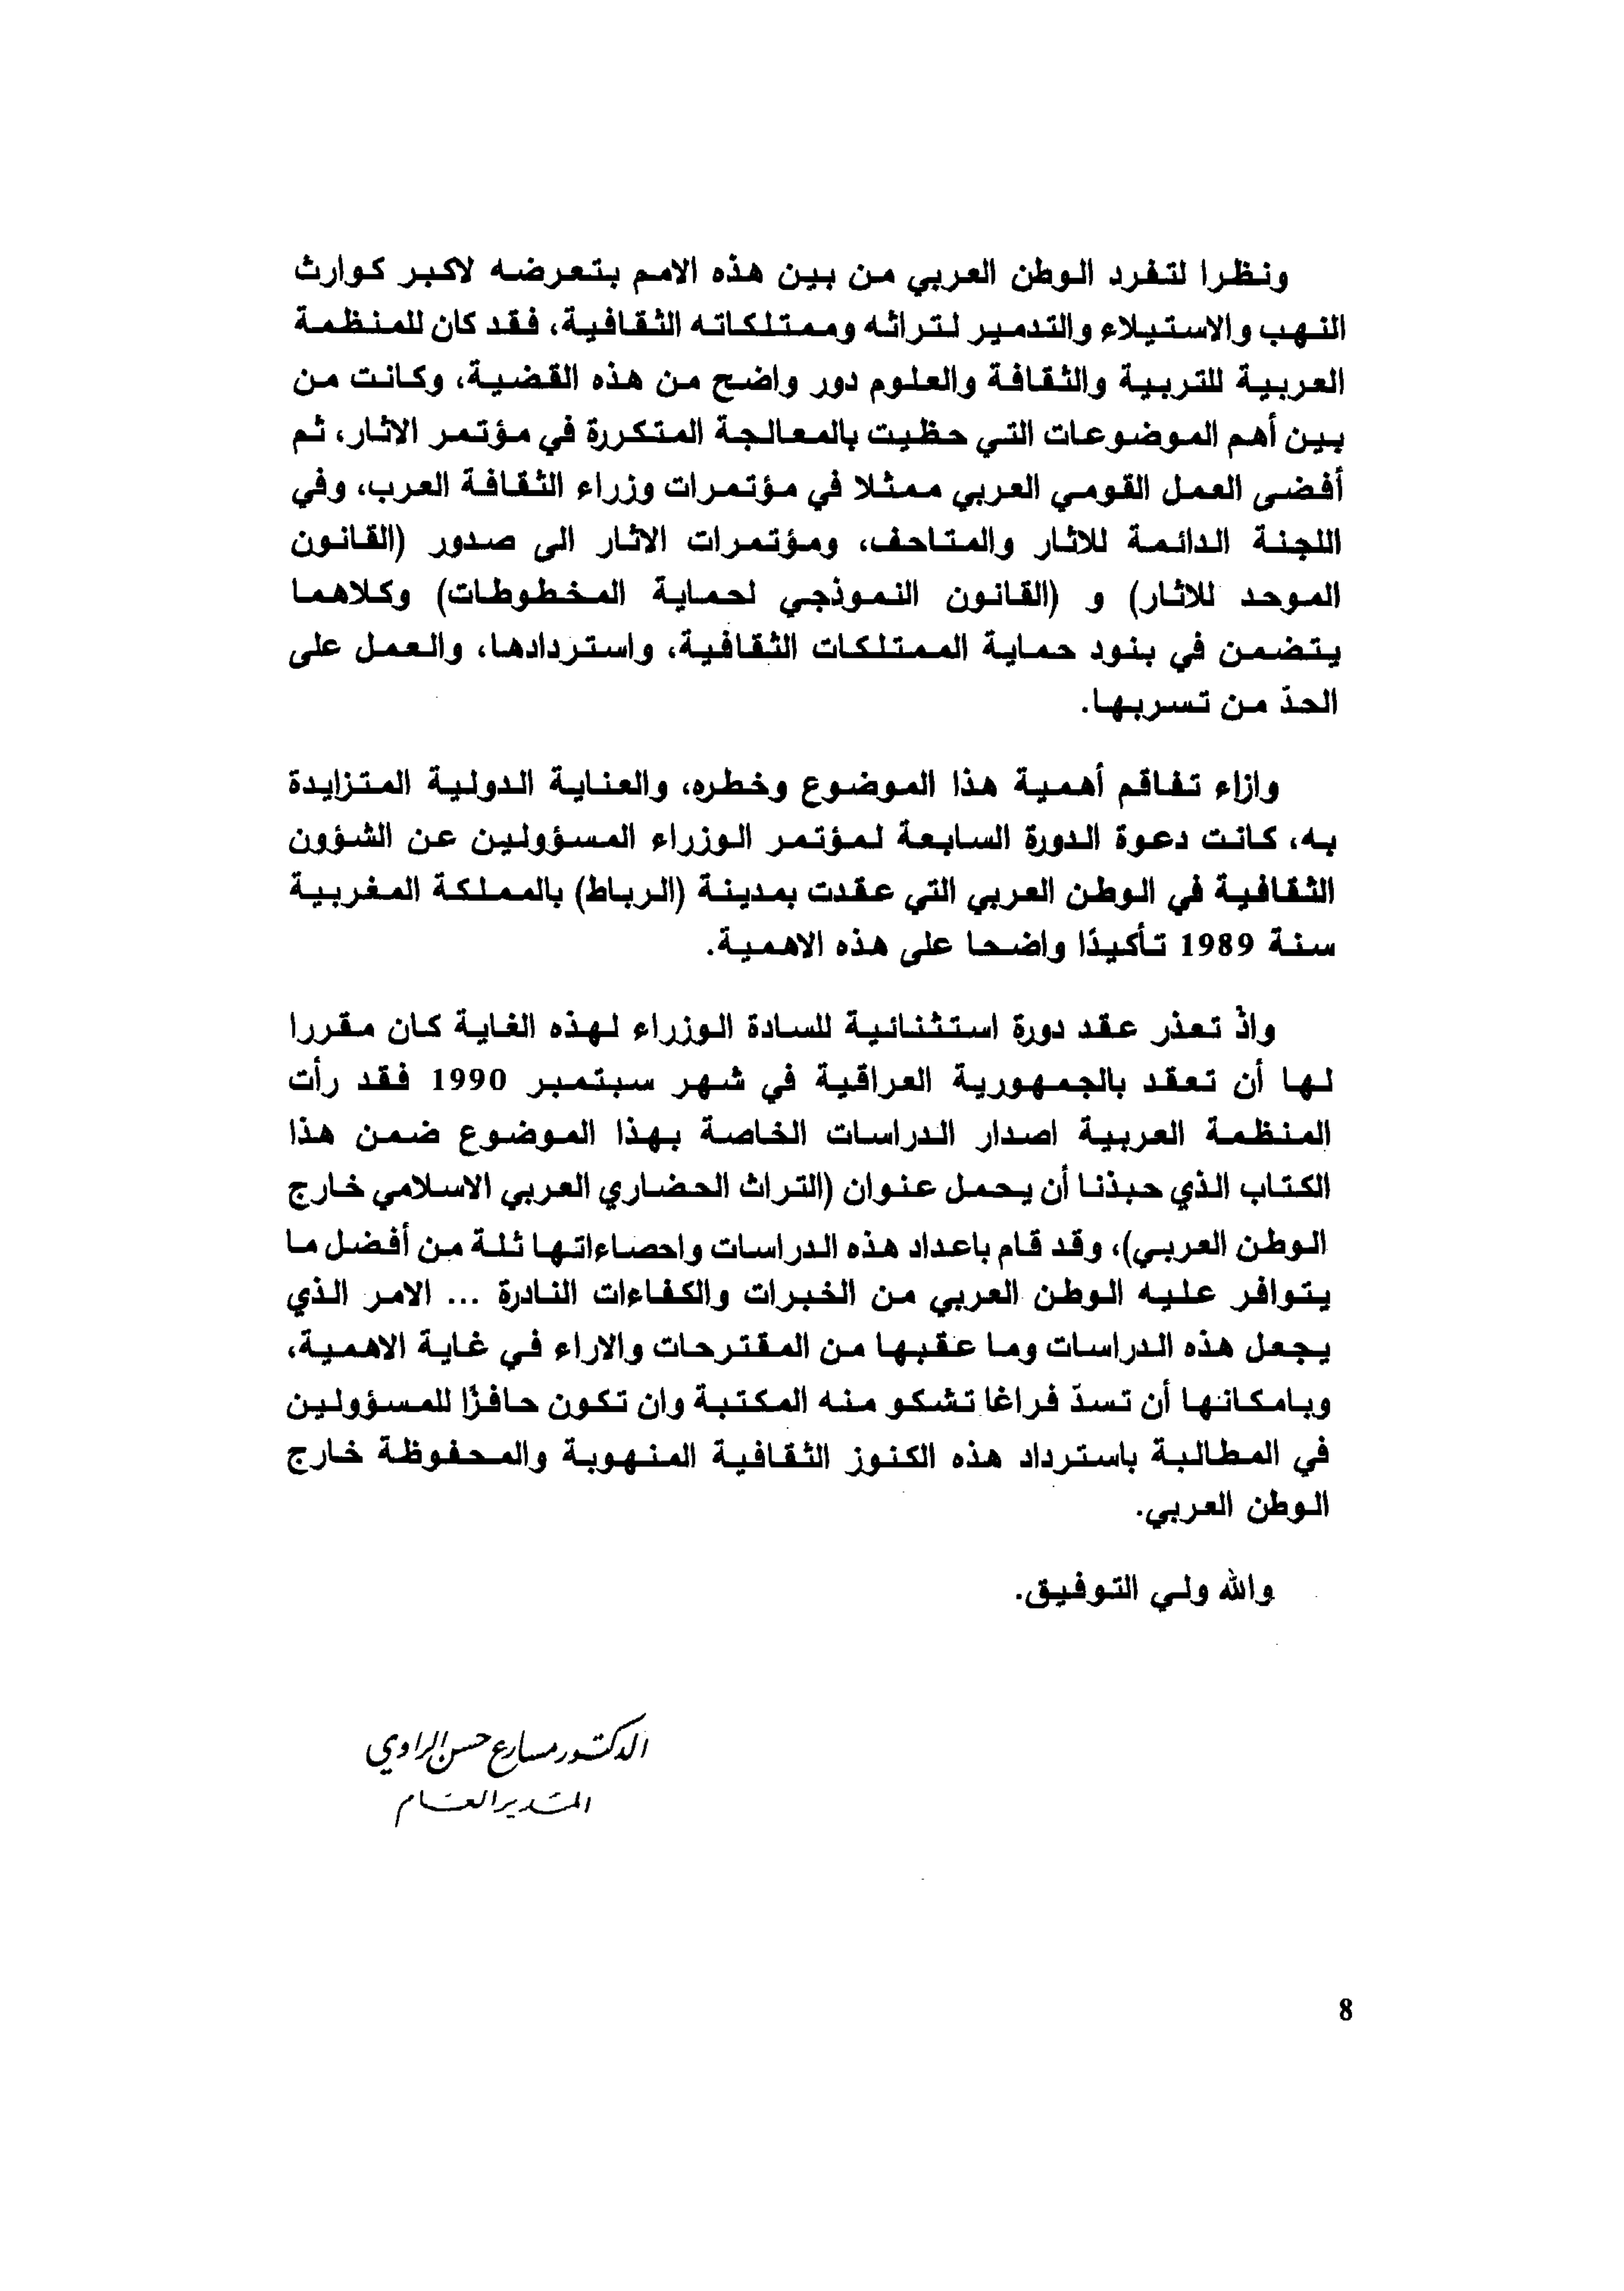 ونظرا لتفرد الوطن العربي من بين هذه الامم بتعرضه لاكبر كوارث
النهب والاستيلاء والتدمير لتراثه وممتلكاته الثقافية، فقد كان للمنظمة
العربية للتربية والثقافة والعلوم دور واضح من هذه القضية، وكانت من
بين أهم الموضوعات التي حظيت بالمعالجة المتكررة في مؤتمر الاثار، ثم
أفضى العمل القومي العربي ممثلا في مؤتمرات وزراء الثقافة العرب، وفي
اللجنة الدائمة للاثار والمتاحف، ومؤتمرات الاثار الى صدور (القانون
الموحد للاثار) و (القانون النموذجي لحماية المخطوطات) وكلاهما
يتضمن في بنود حماية الممتلكات الثقافية، واستردادها، والعمل على
الحدّ من تسربها.
وازاء تفاقم أهمية هذا الموضوع وخطره، والعناية الدولية المتزايدة
به، كانت دعوة الدورة السابعة لمؤتمر الوزراء المسؤولين عن الشؤون
الثقافية في الوطن العربي التي عقدت بمدينة (الرباط) بالمملكة المغربية
سنة 1989 تأكيدًا واضحا على هذه الاهمية.
واذْ تعذر عقد دورة استثنائية للسادة الوزراء لهذه الغاية كان مقررا
لها أن تعقد بالجمهورية العراقية في شهر سبتمبر 1990 فقد رأت
المنظمة العربية اصدار الدراسات الخاصة بهذا الموضوع ضمن هذا
الكتاب الذي حبذنا أن يحمل عنوان (التراث الحضاري العربي الاسلامي خارج
الوطن العربي)، وقد قام باعداد هذه الدراسات واحصاءاتها ثلة من أفضل ما
يتوافر عليه الوطن العربي من الخبرات والكفاءات النادرة ... الامر الذي
يجعل هذه الدراسات وما عقبها من المقترحات والاراء في غاية الاهمية،
وبامكانها أن تسدّ فراغا تشكو منه المكتبة وان تكون حافزًا للمسؤولين
في المطالبة باسترداد هذه الكنوز الثقافية المنهوبة والمحفوظة خارج
الوطن العربي.
والله ولي التوفيق.
الدكتور مسارع حسن الراوي
المدير العام
8